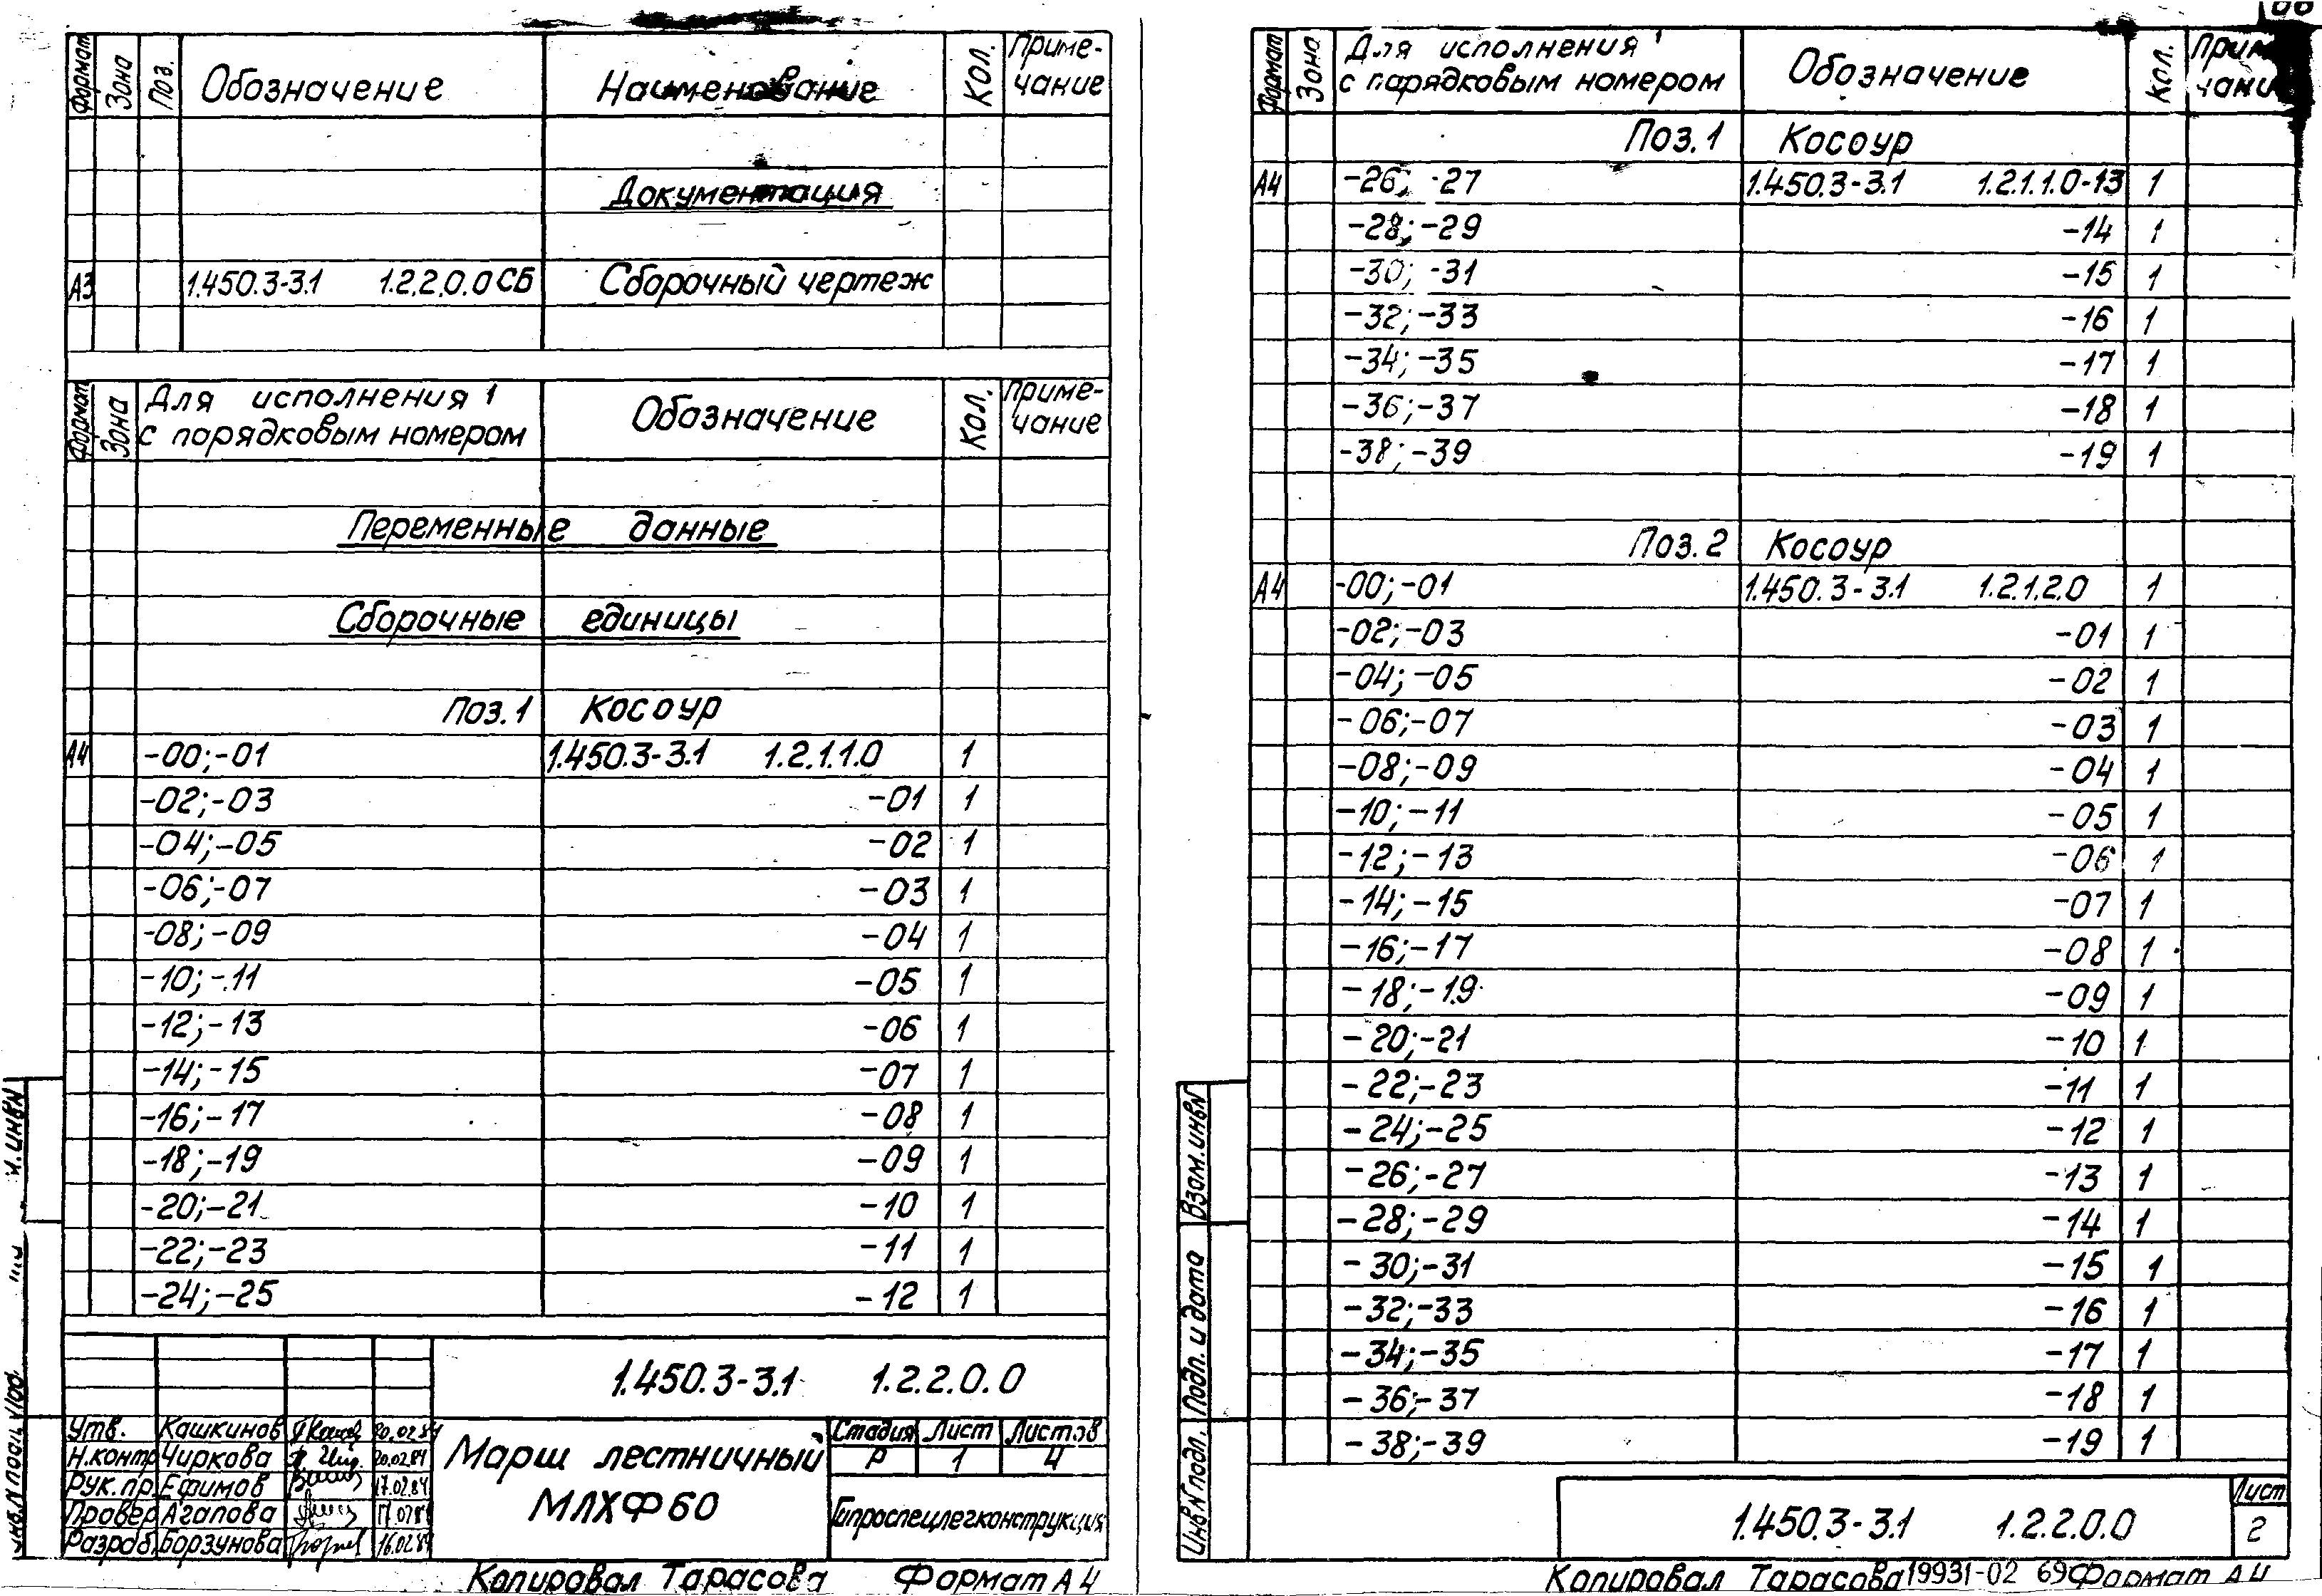 Формат Зона Поз. Обозначение Наименование Кол. Приме-
чание
Документация
А3 1.450.3-3.1 1.2.2.0.0 СБ Сборочный чертеж
Формат Зона Для исполнения 1 Обозначение Кол. Приме-
с порядковым номером чание
Переменные данные
Сборочные единицы
Поз.1 Косоур
А4 -00;-01 1.450.3-3.1 1.2.1.1.0 1
-02;-03 -01 1
-04;-05 -02 1
-06;-07 -03 1
-08;-09 -04 1
-10;-11 -05 1
-12;-13 -06 1
-14;-15 -07 1
-16;-17 -08 1
-18;-19 -09 1
-20;-21 -10 1
-22;-23 -11 1
-24;-25 -12 1
1.450.3-3.1 1.2.2.0.0
Утв. Кашкинов 20.02.84
Н.контр Чиркова 20.02.84
Рук.пр. Ефимов 17.02.84
Провер Агапова
Разраб. Борзунова 16.02.84
Марш лестничный
МЛХФ60
Стадия Лист Листов
Р 1 4
Гипроспецлегконструкция
Копировал Тарасова Формат А4
Формат Зона Для исполнения 1 Обозначение Кол.
с порядковым номером
Поз.1 Косоур
А4 -26; -27 1.450.3-3.1 1.2.1.1.0-13 1
-28;-29 -14 1
-30; -31 -15 1
-32;-33 -16 1
-34;-35 -17 1
-36;-37 -18 1
-38;-39 -19 1
Поз.2 Косоур
А4 -00;-01 1.450.3-3.1 1.2.1.2.0 1
-02;-03 -01 1
-04;-05 -02 1
-06;-07 -03 1
-08;-09 -04 1
-10;-11 -05 1
-12;-13 -06 1
-14;-15 -07 1
-16;-17 -08 1
-18;-19 -09 1
-20;-21 -10 1
-22;-23 -11 1
-24;-25 -12 1
-26;-27 -13 1
-28;-29 -14 1
-30;-31 -15 1
-32;-33 -16 1
-34;-35 -17 1
-36;-37 -18 1
-38;-39 -19 1
Инв.N подл. Подп. и дата Взам.инвN
1.450.3-3.1 1.2.2.0.0
Лист
2
Копировал Тарасова 19931-02 69 Формат А4